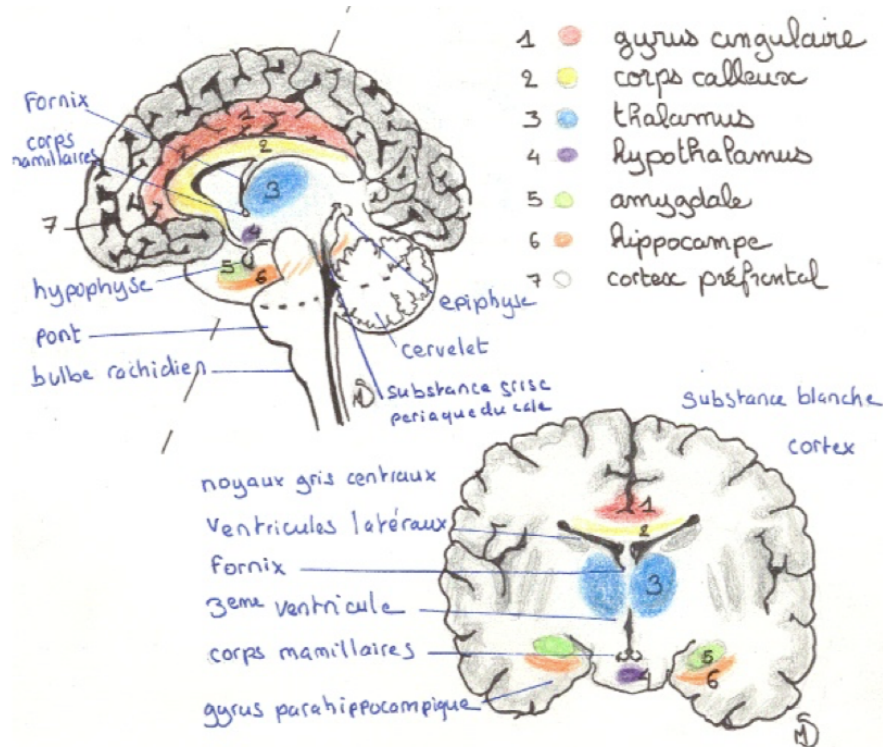 1 gyrus cingulaire
2 corps calleux
3 thalamus
4 hypothalamus
5 amygdale
6 hippocampe
7 cortex préfrontal
Fornix
corps
mamillaires
2
3
4
5
6
7
hypophyse
pont
bulbe rachidien
epiphyse
cervelet
substance grise
periaqueducale
substance blanche
cortex
noyaux gris centraux
ventricules latéraux
fornix
3eme ventricule
corps mamillaires
gyrus parahippocampique
1
2
3
5
6